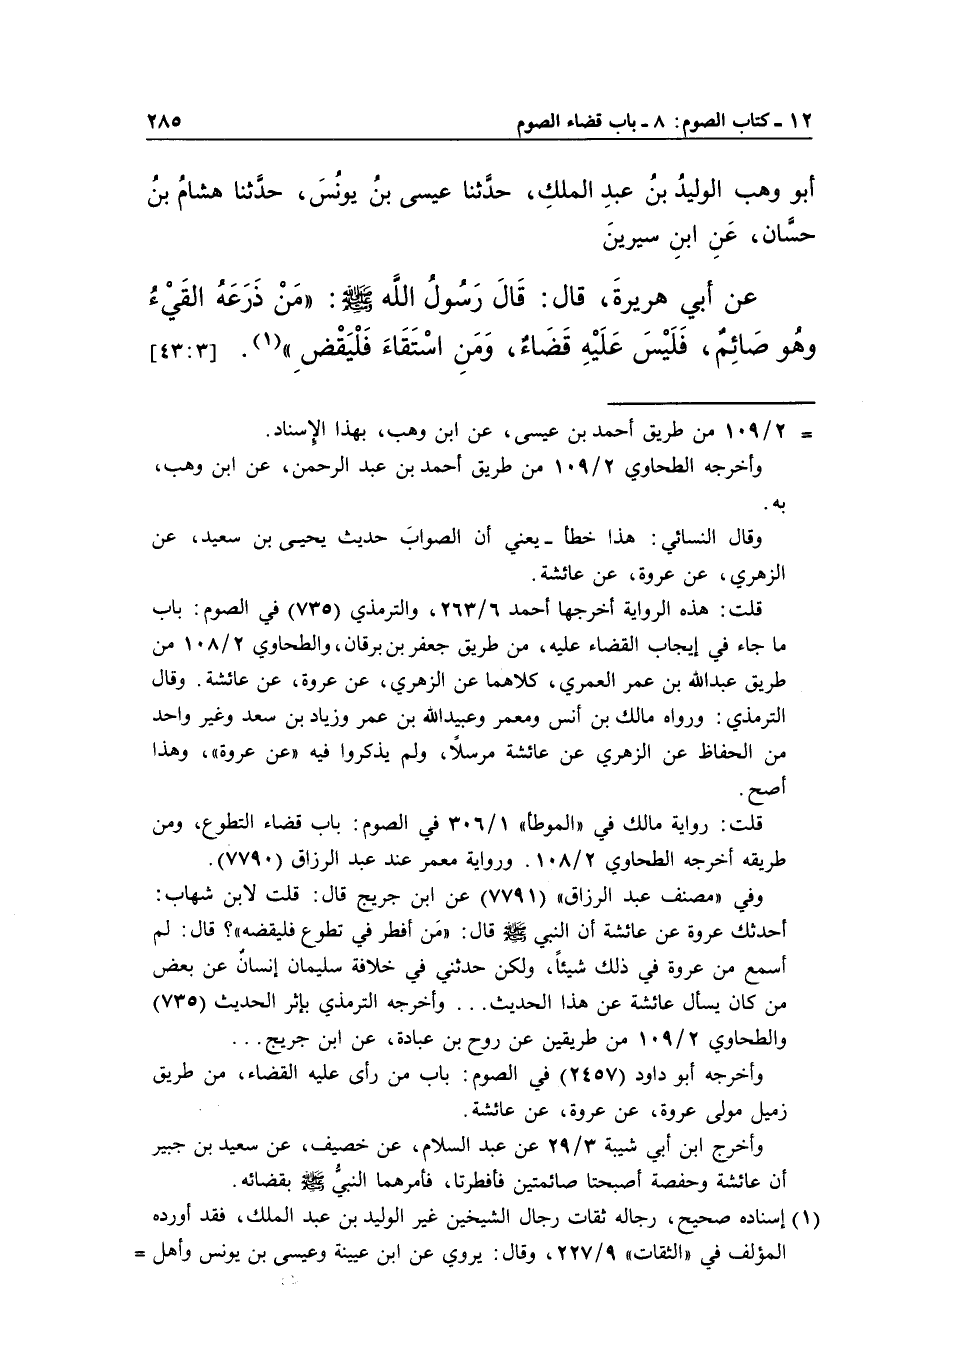 ١٢ ـ كتاب الصوم: ٨ ـ باب قضاء الصوم ٢٨٥
أبو وهب الوليدُ بنُ عبدِ الملكِ، حدَّثنا عيسى بنُ يونُسَ، حدَّثنا هشامُ بنُ
حسَّان، عَنِ ابنِ سيرينَ
عن أبي هريرةَ، قال: قَالَ رَسُولُ اللَّه ﷺ: «مَنْ ذَرَعَهُ القَيْءُ
وهُو صَائِمٌ، فَلَيْسَ عَلَيْهِ قَضَاءٌ، وَمَنِ اسْتَقَاءَ فَلْيَقْضِ»(١). [٤٣:٣]
= ١٠٩/٢ من طريق أحمد بن عيسى، عن ابن وهب، بهذا الإسناد.
وأخرجه الطحاوي ١٠٩/٢ من طريق أحمد بن عبد الرحمن، عن ابن وهب،
به.
وقال النسائي: هذا خطأ ـ يعني أن الصوابَ حديث يحيى بن سعيد، عن
الزهري، عن عروة، عن عائشة.
قلت: هذه الرواية أخرجها أحمد ٢٦٣/٦، والترمذي (٧٣٥) في الصوم: باب
ما جاء في إيجاب القضاء عليه، من طريق جعفر بن برقان، والطحاوي ١٠٨/٢ من
طريق عبدالله بن عمر العمري، كلاهما عن الزهري، عن عروة، عن عائشة. وقال
الترمذي: ورواه مالك بن أنس ومعمر وعبيدالله بن عمر وزياد بن سعد وغير واحد
من الحفاظ عن الزهري عن عائشة مرسلًا، ولم يذكروا فيه «عن عروة»، وهذا
أصح.
قلت: رواية مالك في «الموطأ» ٣٠٦/١ في الصوم: باب قضاء التطوع، ومن
طريقه أخرجه الطحاوي ١٠٨/٢. ورواية معمر عند عبد الرزاق (٧٧٩٠).
وفي «مصنف عبد الرزاق» (٧٧٩١) عن ابن جريج قال: قلت لابن شهاب:
أحدثك عروة عن عائشة أن النبي ﷺ قال: «مَن أفطر في تطوع فليقضه»؟ قال: لم
أسمع من عروة في ذلك شيئاً، ولكن حدثني في خلافة سليمان إنسانٌ عن بعض
من كان يسأل عائشة عن هذا الحديث... وأخرجه الترمذي بإثر الحديث (٧٣٥)
والطحاوي ١٠٩/٢ من طريقين عن روح بن عبادة، عن ابن جريج...
وأخرجه أبو داود (٢٤٥٧) في الصوم: باب من رأى عليه القضاء، من طريق
زميل مولى عروة، عن عروة، عن عائشة.
وأخرج ابن أبي شيبة ٢٩/٣ عن عبد السلام، عن خصيف، عن سعيد بن جبير
أن عائشة وحفصة أصبحتا صائمتين فأفطرتا، فأمرهما النبيُّ ﷺ بقضائه.
(١) إسناده صحيح، رجاله ثقات رجال الشيخين غير الوليد بن عبد الملك، فقد أورده
المؤلف في «الثقات» ٢٢٧/٩، وقال: يروي عن ابن عيينة وعيسى بن يونس وأهل =